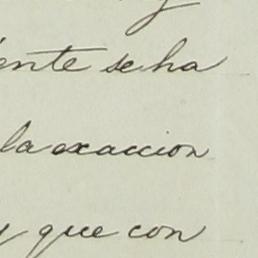 y
ente se ha
la exaccion
y que con